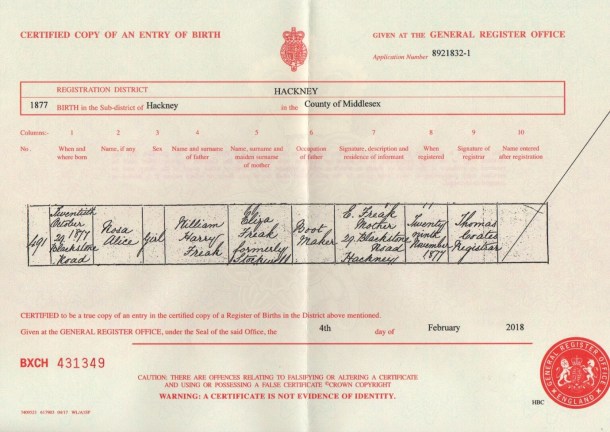 CERTIFIED COPY OF AN ENTRY OF BIRTH
GIVEN AT THE GENERAL REGISTER OFFICE
Application Number 8921832-1
REGISTRATION DISTRICT HACKNEY
1877 BIRTH in the Sub-district of Hackney in the County of Middlesex
Columns:- 1 2 3 4 5 6 7 8 9 10
No. When and where born Name, if any Sex Name and surname of father Name, surname and maiden surname of mother Occupation of father Signature, description and residence of informant When registered Signature of registrar Name entered after registration
491
Twentieth
October
1877
29 Blackstone
Road
Rosa
Alice
Girl
William
Harry
Freak
Eliza
Freak
formerly
Boot
Maker
E. Freak
Mother
29 Blackstone
Road
Hackney
Twenty
ninth
November
1877
Thomas
Coates
Registrar
CERTIFIED to be a true copy of an entry in the certified copy of a Register of Births in the District above mentioned.
Given at the GENERAL REGISTER OFFICE, under the Seal of the said Office, the 4th day of February 2018
BXCH 431349
CAUTION: THERE ARE OFFENCES RELATING TO FALSIFYING OR ALTERING A CERTIFICATE
AND USING OR POSSESSING A FALSE CERTIFICATE ©CROWN COPYRIGHT
WARNING: A CERTIFICATE IS NOT EVIDENCE OF IDENTITY.
HBC
GENERAL REGISTER OFFICE
ENGLAND